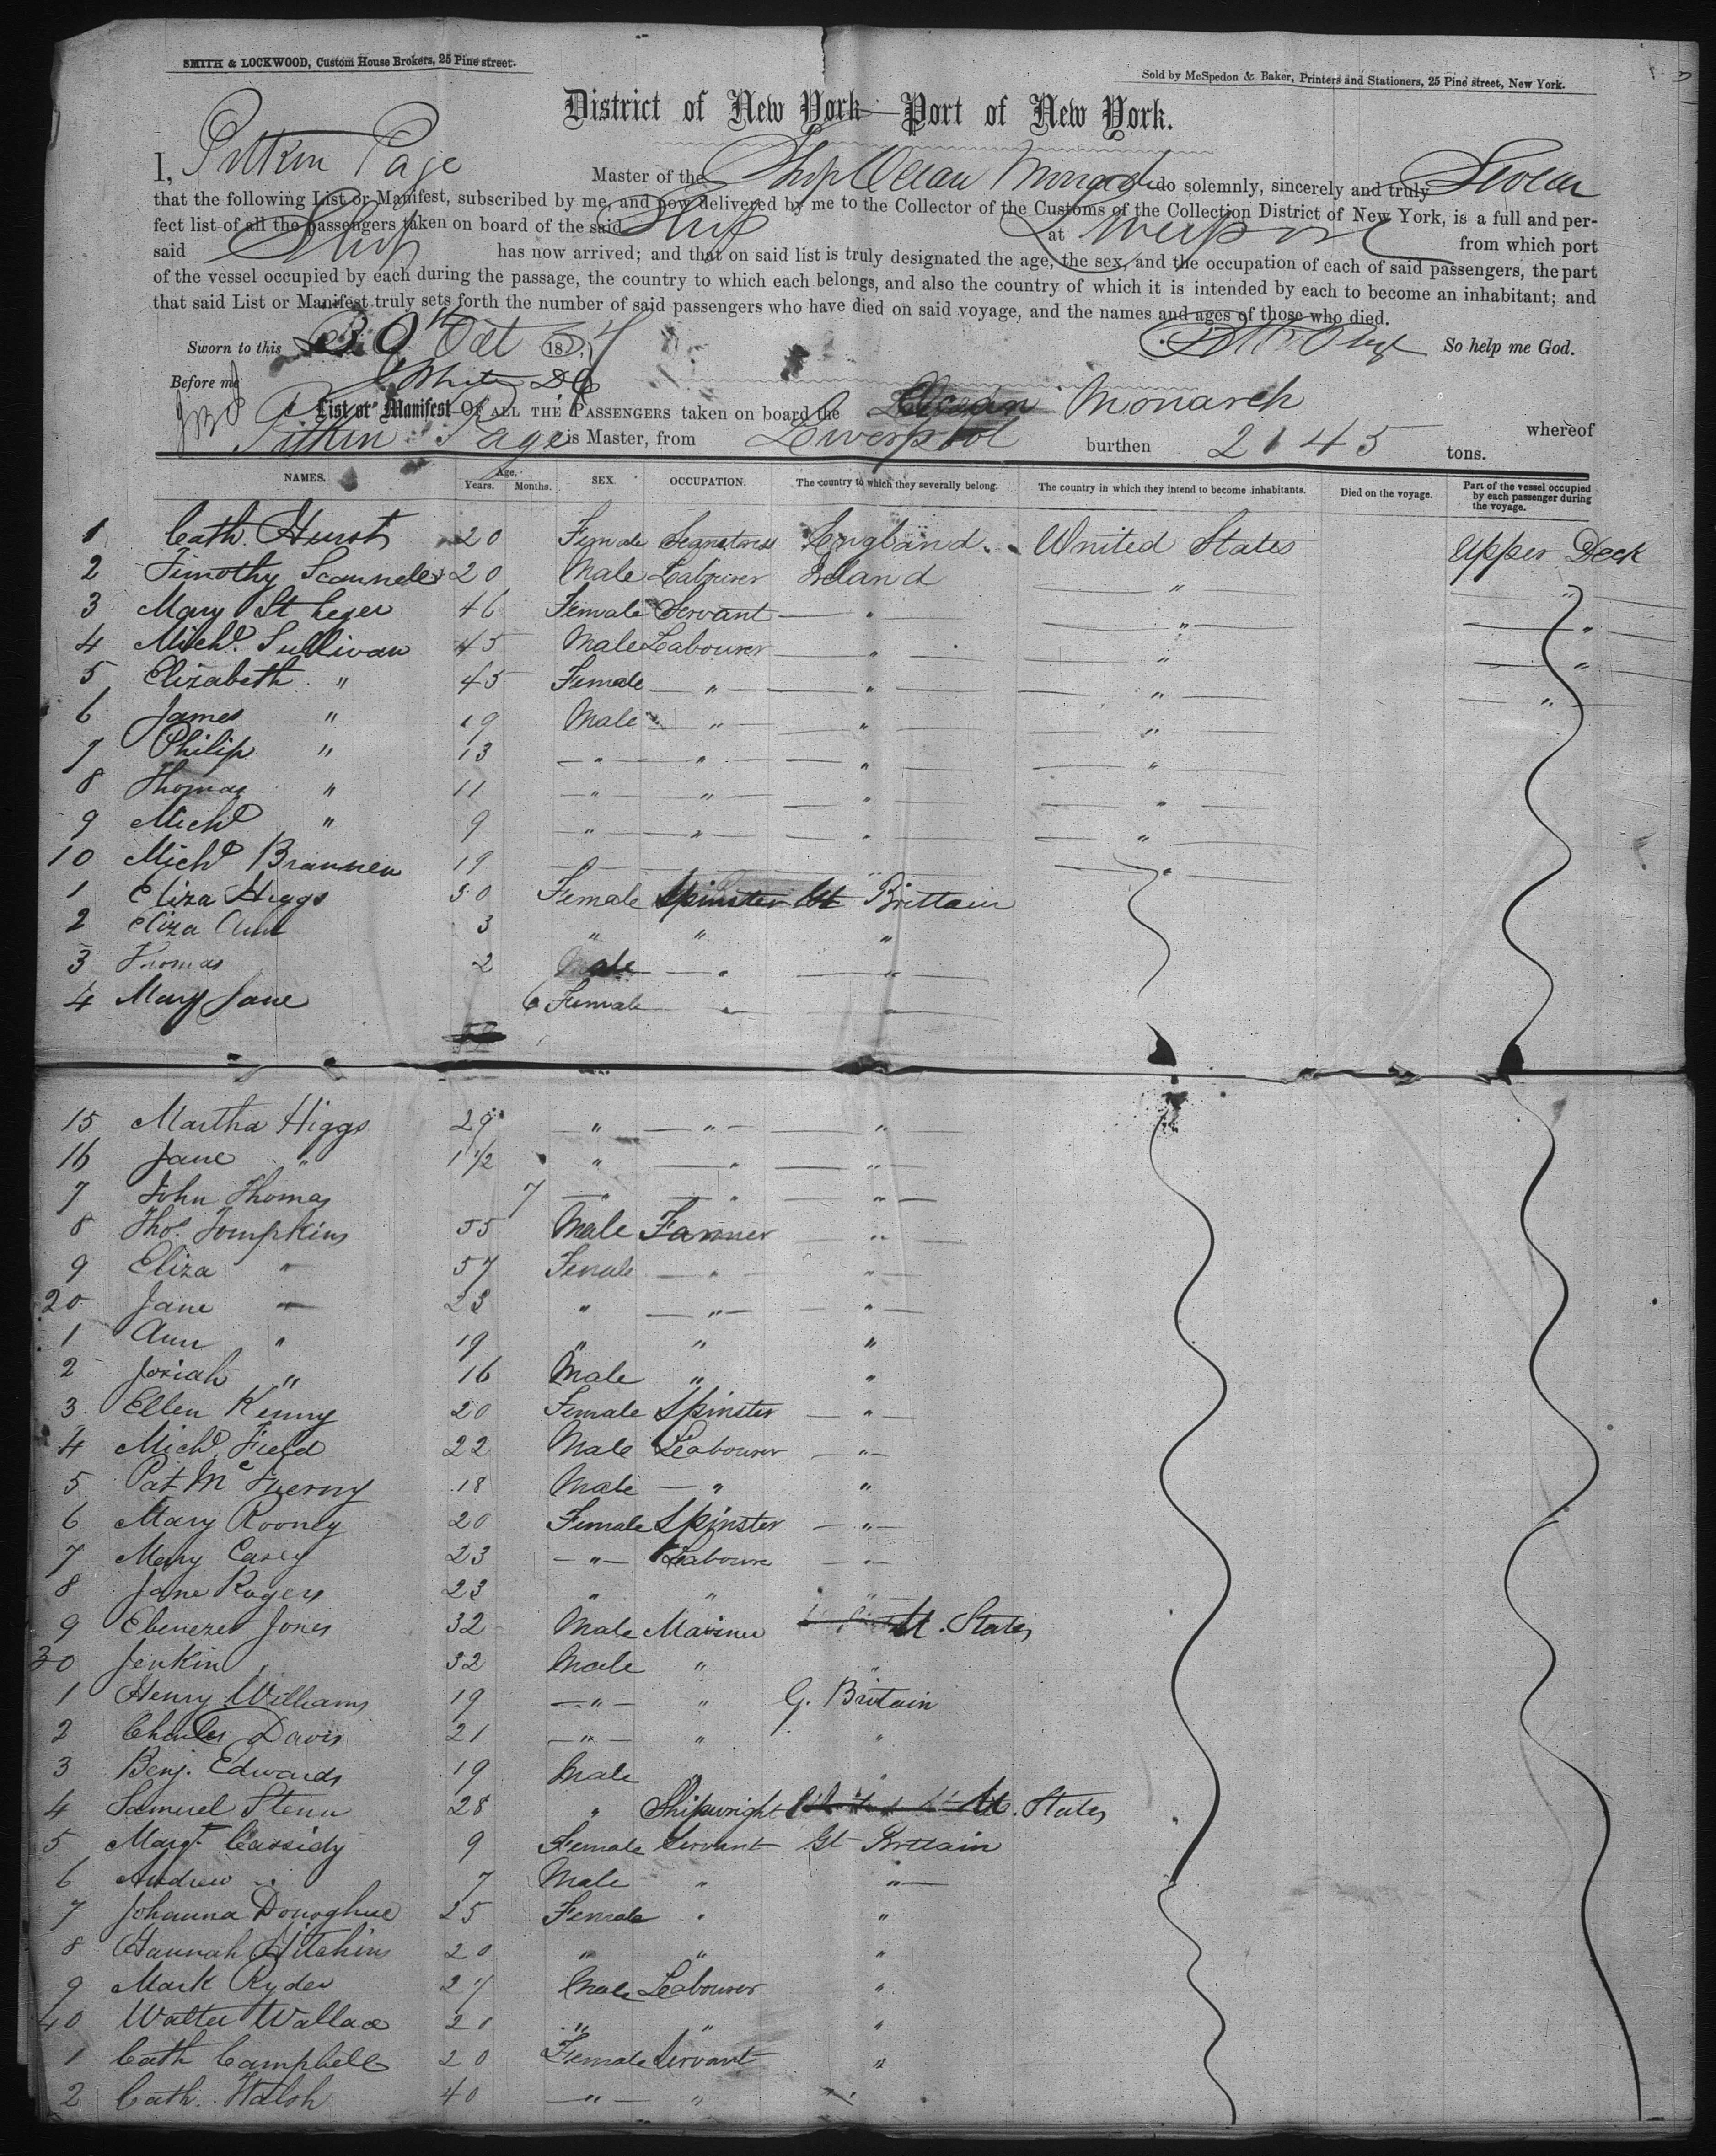 SMITH & LOCKWOOD, Custom House Brokers, 25 Pine street.
Sold by McSpedon & Baker, Printers and Stationers, 25 Pine street, New York.
District of New York—Port of New York.
I, Pitkin Page Master of the Ship Ocean Monarch do solemnly, sincerely and truly Swear
that the following List or Manifest, subscribed by me, and now delivered by me to the Collector of the Customs of the Collection District of New York, is a full and per-
fect list of all the passengers taken on board of the said Ship at Liverpool from which port
said Ship has now arrived; and that on said list is truly designated the age, the sex, and the occupation of each of said passengers, the part
of the vessel occupied by each during the passage, the country to which each belongs, and also the country of which it is intended by each to become an inhabitant; and
that said List or Manifest truly sets forth the number of said passengers who have died on said voyage, and the names and ages of those who died.
Sworn to this 30th Oct 18 So help me God.
Before me
List or Manifest OF ALL THE PASSENGERS taken on board the Ocean Monarch whereof
Pitkin Page is Master, from Liverpool burthen 2145 tons.
NAMES. Age. Years. Months. SEX. OCCUPATION. The country to which they severally belong. The country in which they intend to become inhabitants. Died on the voyage. Part of the vessel occupied by each passenger during the voyage.
1 Cath. Hurst 20 Female England United States Upper Deck
2 Timothy Scannell 20 Male Labourer Ireland " "
3 Mary St Leger 46 Female Servant " " "
4 Michl. Sullivan 45 Male Labourer " " "
5 Elizabeth " 45 Female " " " "
6 James " 19 Male " " "
7 Philip " 13 " " " "
8 Thomas " 11 " " " "
9 Michl " 9 " " " "
10 Michl Brannen 19 " " " "
1 Eliza Higgs 30 Female Spinster Gt Brittain
2 Eliza Ann 3 " " "
3 Thomas 2 Male " "
4 Mary Jane 6 Female " "
15 Martha Higgs 29 " " "
16 Jane " 1 1/2 " " "
7 John Thomas 7 " " "
8 Thos. Tompkins 55 Male Farmer "
9 Eliza " 57 Female " "
20 Jane " 23 " " "
1 Ann " 19 " " "
2 Josiah " 16 Male " "
3 Ellen Kenny 20 Female Spinster "
4 Michl Field 22 Male Labourer "
5 Pat Mc 18 Male " "
6 Mary Rooney 20 Female Spinster "
7 Mary Casey 23 " Laboure "
8 Jane Rogers 23 " " "
9 Ebenezer Jones 32 Male Mariner U. States
30 Jenkin " 32 Male " "
1 Henry Williams 19 " " G. Britain
2 Charles Davis 21 " " "
3 Benj. Edwards 19 Male " "
4 Samuel Stenn 28 " Shipwright U. States
5 Margt Cassidy 9 Female Servant Gt Brittain
6 Andrew " 7 Male " "
7 Johanna Donoghue 25 Female " "
8 Hannah Hitchins 20 " " "
9 Mark Ryder 27 Male Labourer "
40 Walter Wallace 21 " " "
1 Cath Campbell 20 Female Servant "
2 Cath. Walsh 40 " " "